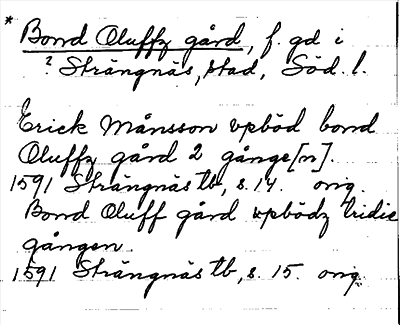 * Bond Oluffz gård, f. gd i
? Strängnäs, stad, Söd. l.
Erick Månsson vpböd bond
Oluffz gård 2 gånge[n].
1591 Strängnäs tb, s. 14. orig.
Bond Oluff gård vpbödz tridie
gången
1591 Strängnäs tb, s. 15. orig.